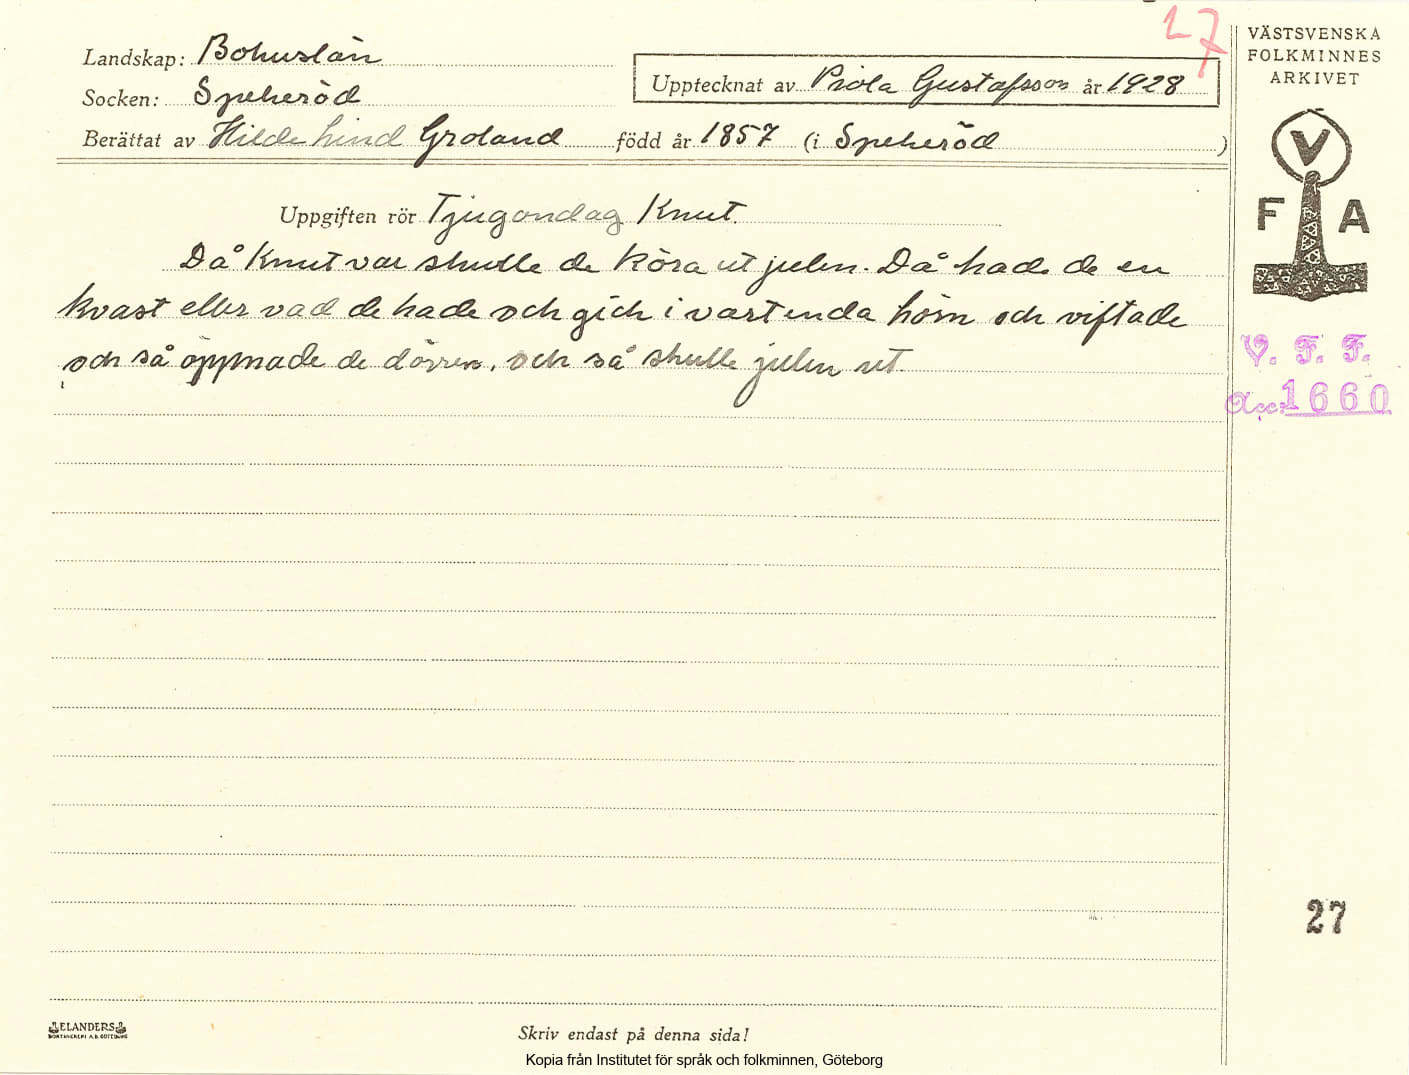 27
VÄSTSVENSKA
FOLKMINNES
ARKIVET
Landskap: Bohuslän
Upptecknat av Viola Gustafsson år 1928
Socken: Spekeröd
Berättat av Hilda Lind Groland född år 1857 (i Spekeröd )
V
F A
Uppgiften rör Tjugondag Knut.
Då Knut var skulle de köra ut julen. Då hade de en
kvast eller vad de hade och gick i vartenda hörn och viftade
och så öppnade de dörren, och så skulle julen ut.
V. F. F.
Acc: 1660
27
ELANDERS
BOKTRYCKERI A.B. GÖTEBORG
Skriv endast på denna sida!
Kopia från Institutet för språk och folkminnen, Göteborg